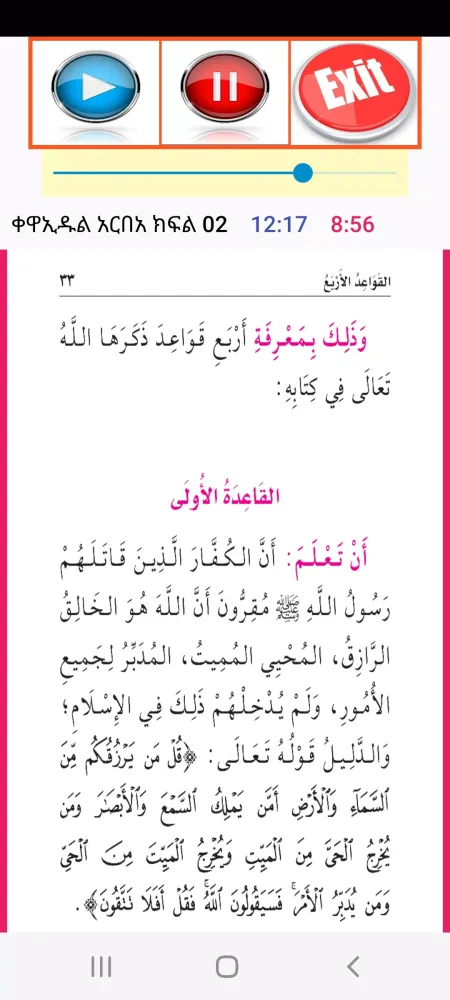 Exit
ቀዋኢዱል አርበአ ክፍል 02 12:17 8:56
القَوَاعِدُ الأَرْبَعُ ٣٣
وَذَلِكَ بِمَعْرِفَةِ أَرْبَعِ قَوَاعِدَ ذَكَرَهَا اللَّهُ
تَعَالَى فِي كِتَابِهِ:
القَاعِدَةُ الأُولَى
أَنْ تَعْلَمَ: أَنَّ الكُفَّارَ الَّذِينَ قَاتَلَهُمْ
رَسُولُ اللَّهِ ﷺ مُقِرُّونَ أَنَّ اللَّهَ هُوَ الخَالِقُ
الرَّازِقُ، المُحْيِي المُمِيتُ، المُدَبِّرُ لِجَمِيعِ
الأُمُورِ، وَلَمْ يُدْخِلْهُمْ ذَلِكَ فِي الإِسْلَامِ؛
وَالدَّلِيلُ قَوْلُهُ تَعَالَى: ﴿قُلْ مَن يَرْزُقُكُم مِّنَ
ٱلسَّمَآءِ وَٱلْأَرْضِ أَمَّن يَمْلِكُ ٱلسَّمْعَ وَٱلْأَبْصَٰرَ وَمَن
يُخْرِجُ ٱلْحَىَّ مِنَ ٱلْمَيِّتِ وَيُخْرِجُ ٱلْمَيِّتَ مِنَ ٱلْحَىِّ
وَمَن يُدَبِّرُ ٱلْأَمْرَۚ فَسَيَقُولُونَ ٱللَّهُۚ فَقُلْ أَفَلَا تَتَّقُونَ﴾.